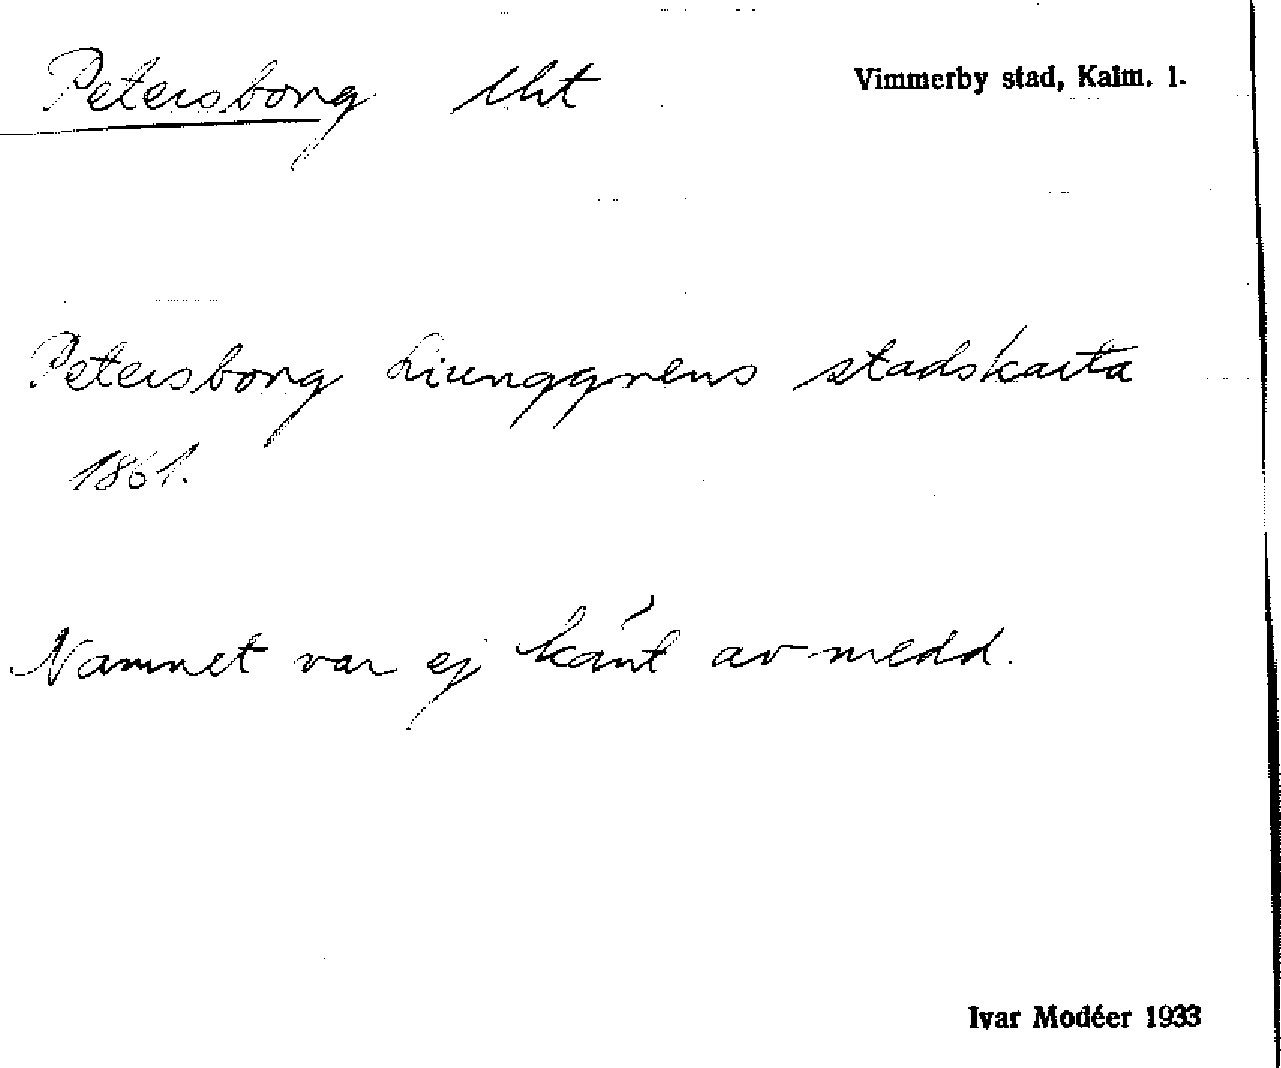 Petersborg lht Vimmerby stad, Kalm. l.
Petersborg Liunggrens stadskarta
1861.
Namnet var ej känt av medd.
Ivar Modéer 1933